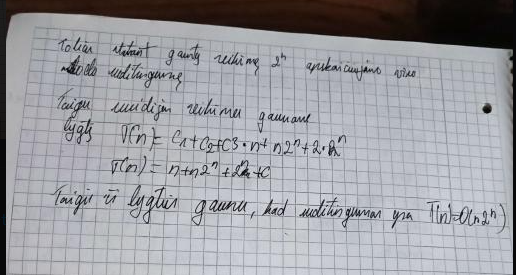 Toliau statant gautą reikšmę 2ⁿ apskaičiuojamo viso
kodo sudėtingumą
Taigi reikšmes gauname
lygtį T(n) = C1+C2+C3·n+n2ⁿ+2·2ⁿ
T(n) = n+n2ⁿ+2ⁿ+C
Taigi iš lygties gauname, kad sudėtingumas yra T(n)=O(n2ⁿ)